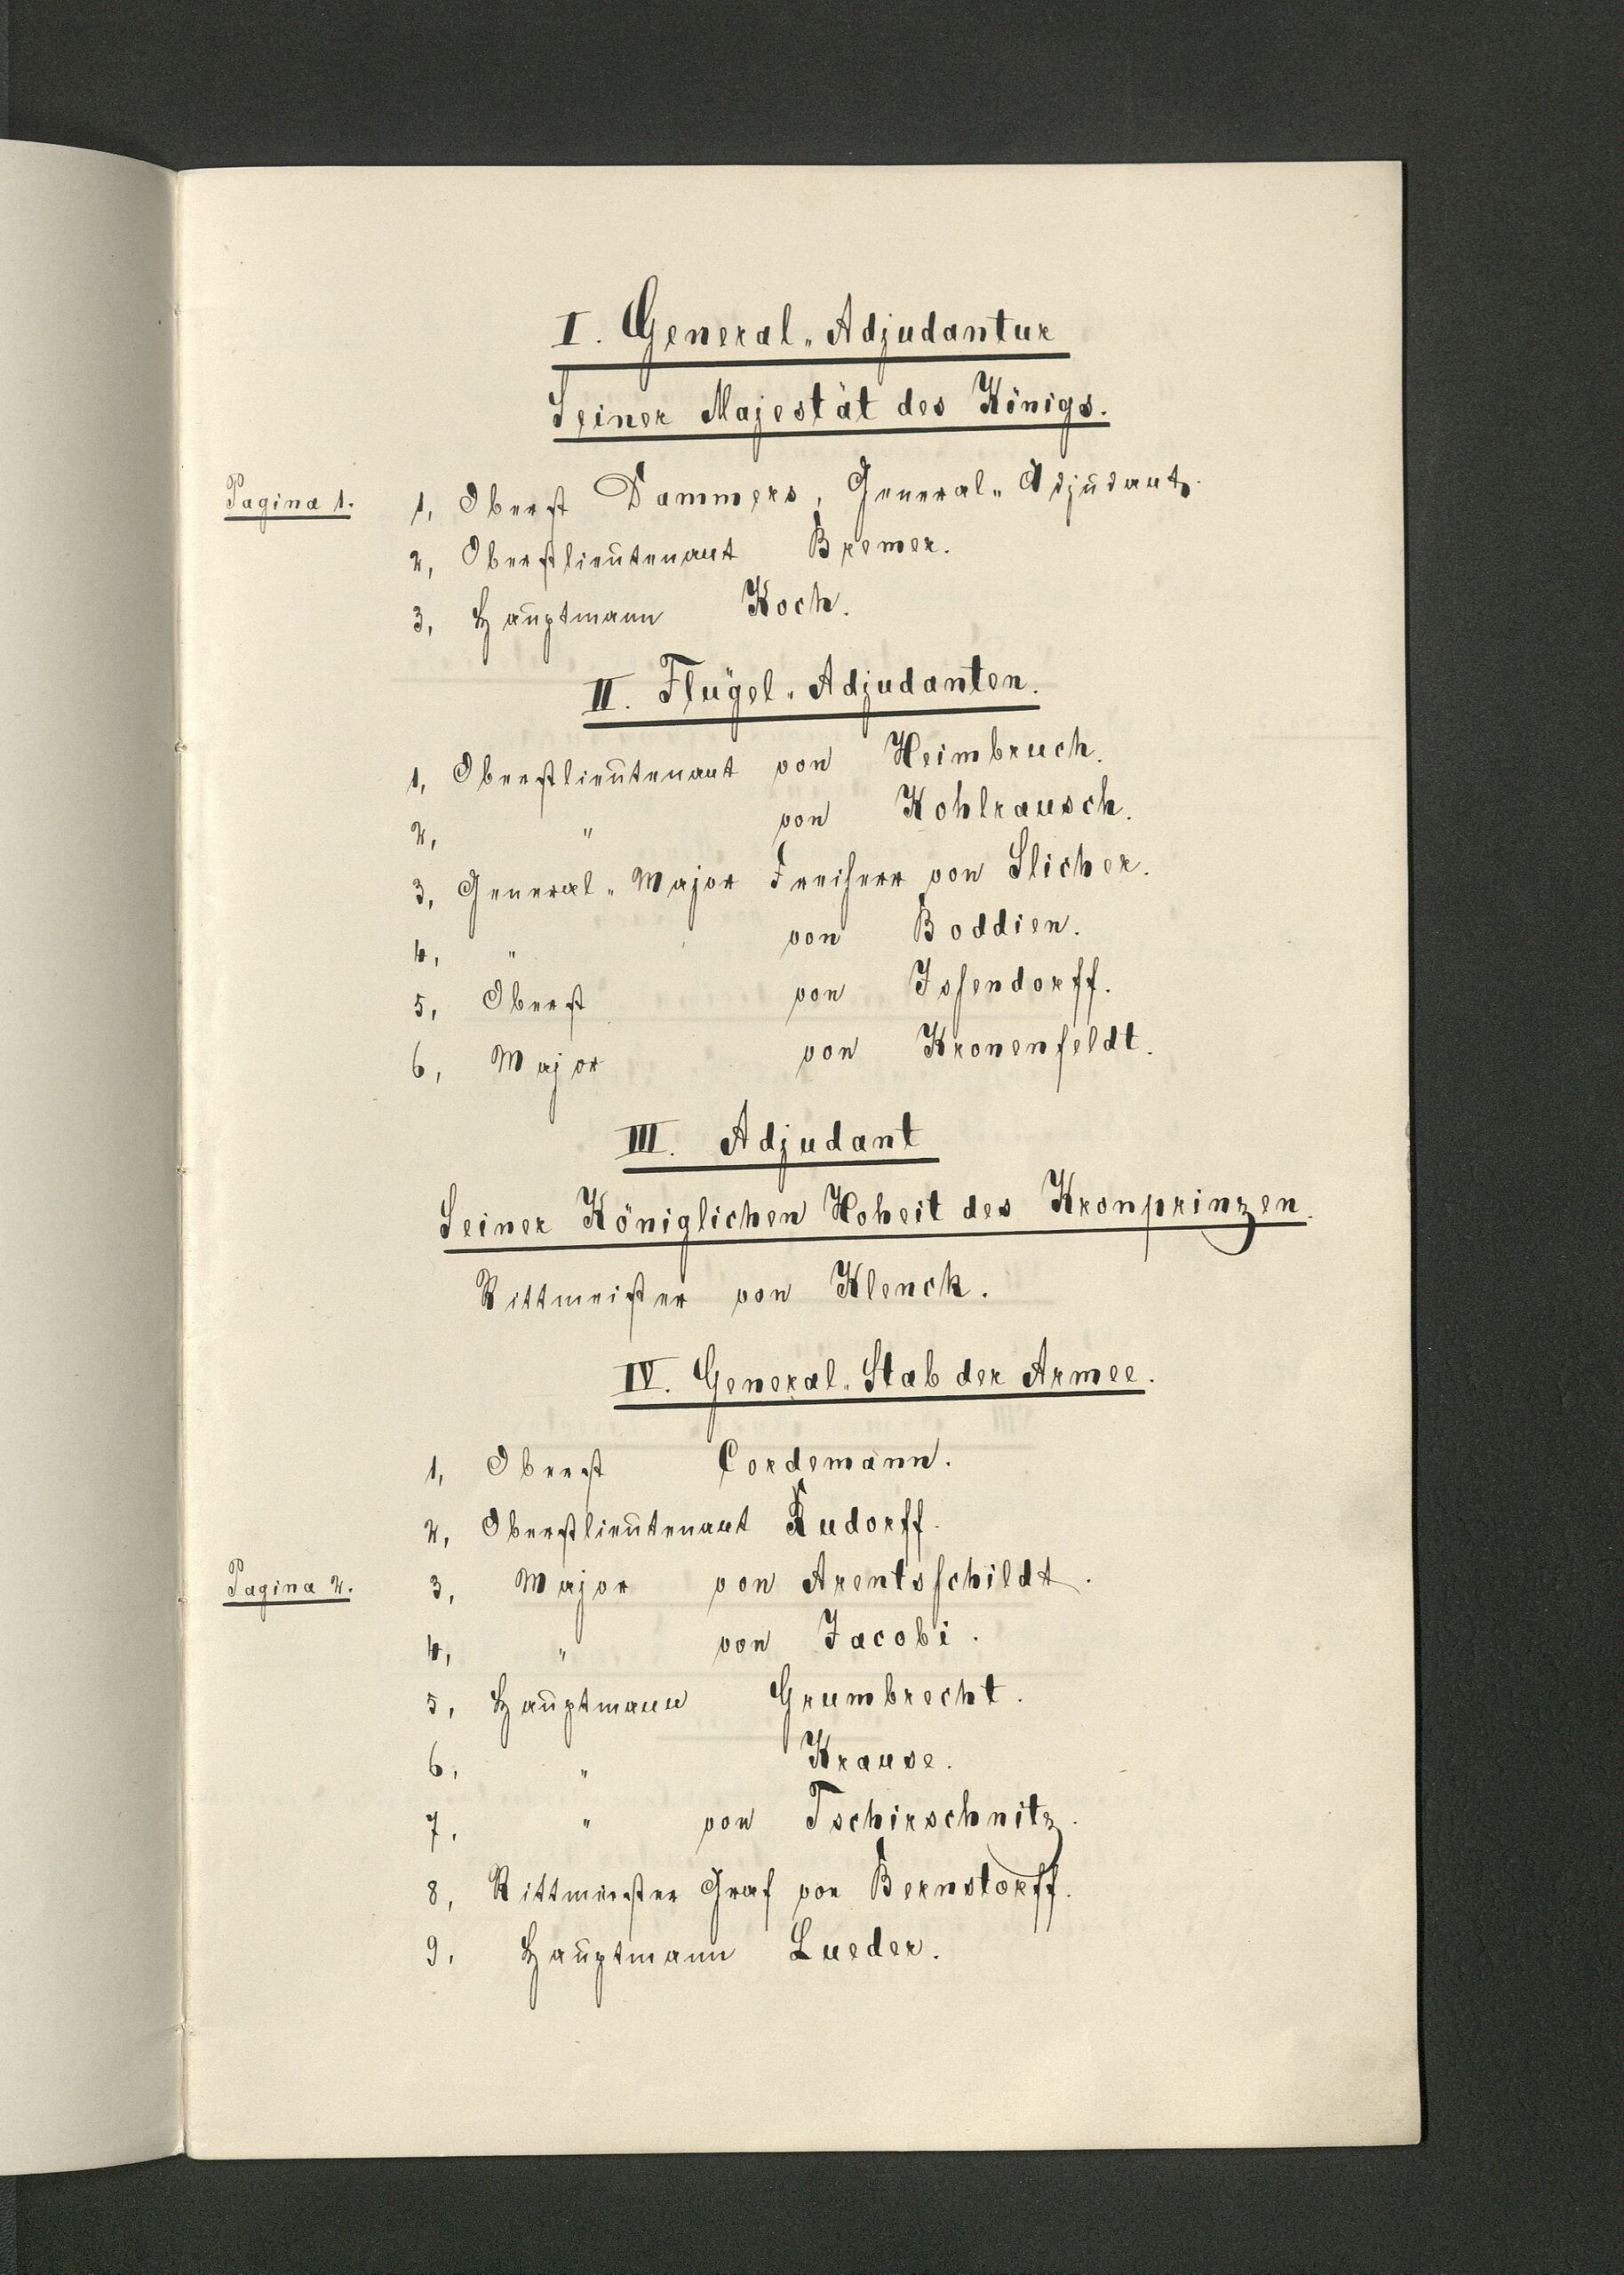 I. General-Adjudantur
Seiner Majestät des Königs.
Pagina 1.
1, Oberst Dammers, General-Adjudant.
2, Oberstlieutenant Bremer.
3, Hauptmann Koch.
II. Flügel-Adjudanten.
1, Oberstlieutenant von Heimbruch.
2, " von Kohlrausch.
3, General-Major Freiherr von Slicher.
4, " von Boddien.
5, Oberst von Issendorff.
6, Major von Kronenfeldt.
III. Adjudant
Seiner Königlichen Hoheit des Kronprinzen.
Rittmeister von Klenck.
IV. General-Stab der Armee.
1, Oberst Cordemann.
2, Oberstlieutenant Rudorff.
Pagina 2.
3, Major von Arentsschildt.
4, " von Jacobi.
5, Hauptmann Grumbrecht.
6, " Krause.
7, " von Tschirschnitz.
8, Rittmeister Graf von Bernstorff.
9, Hauptmann Lueder.